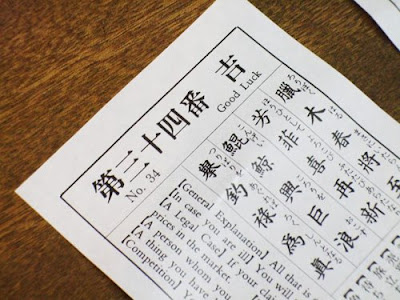 第三十四番 吉
No. 34 Good Luck
臘木春將至
芳菲喜再新
鯤鯨興巨浪
擧釣祿為真
【General Explanation】 All that is
【In case you are ill】 You will
【A Legal Case】 If your
prices in the market.
【A person whom you
【A thing you have
Competition】